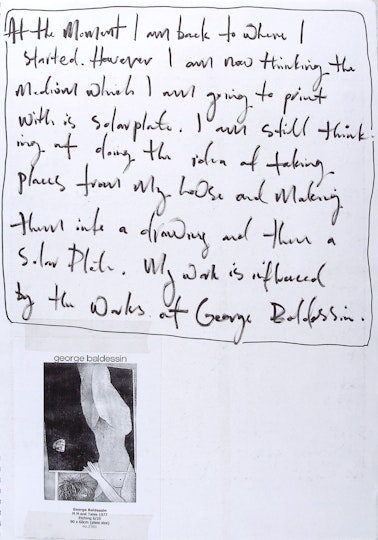 At the Moment I am back to where I
started. However I am now thinking the
Medium which I am going to print
with is solarplate. I am still think-
ing of doing the idea of taking
places from My house and Making
them into a drawing and then a
Solar Plate. My work is influenced
by the works of George Baldessin.
george baldessin
George Baldessin
M M and Table 1977
Etching 6/25
90 x 60cm (plate size)